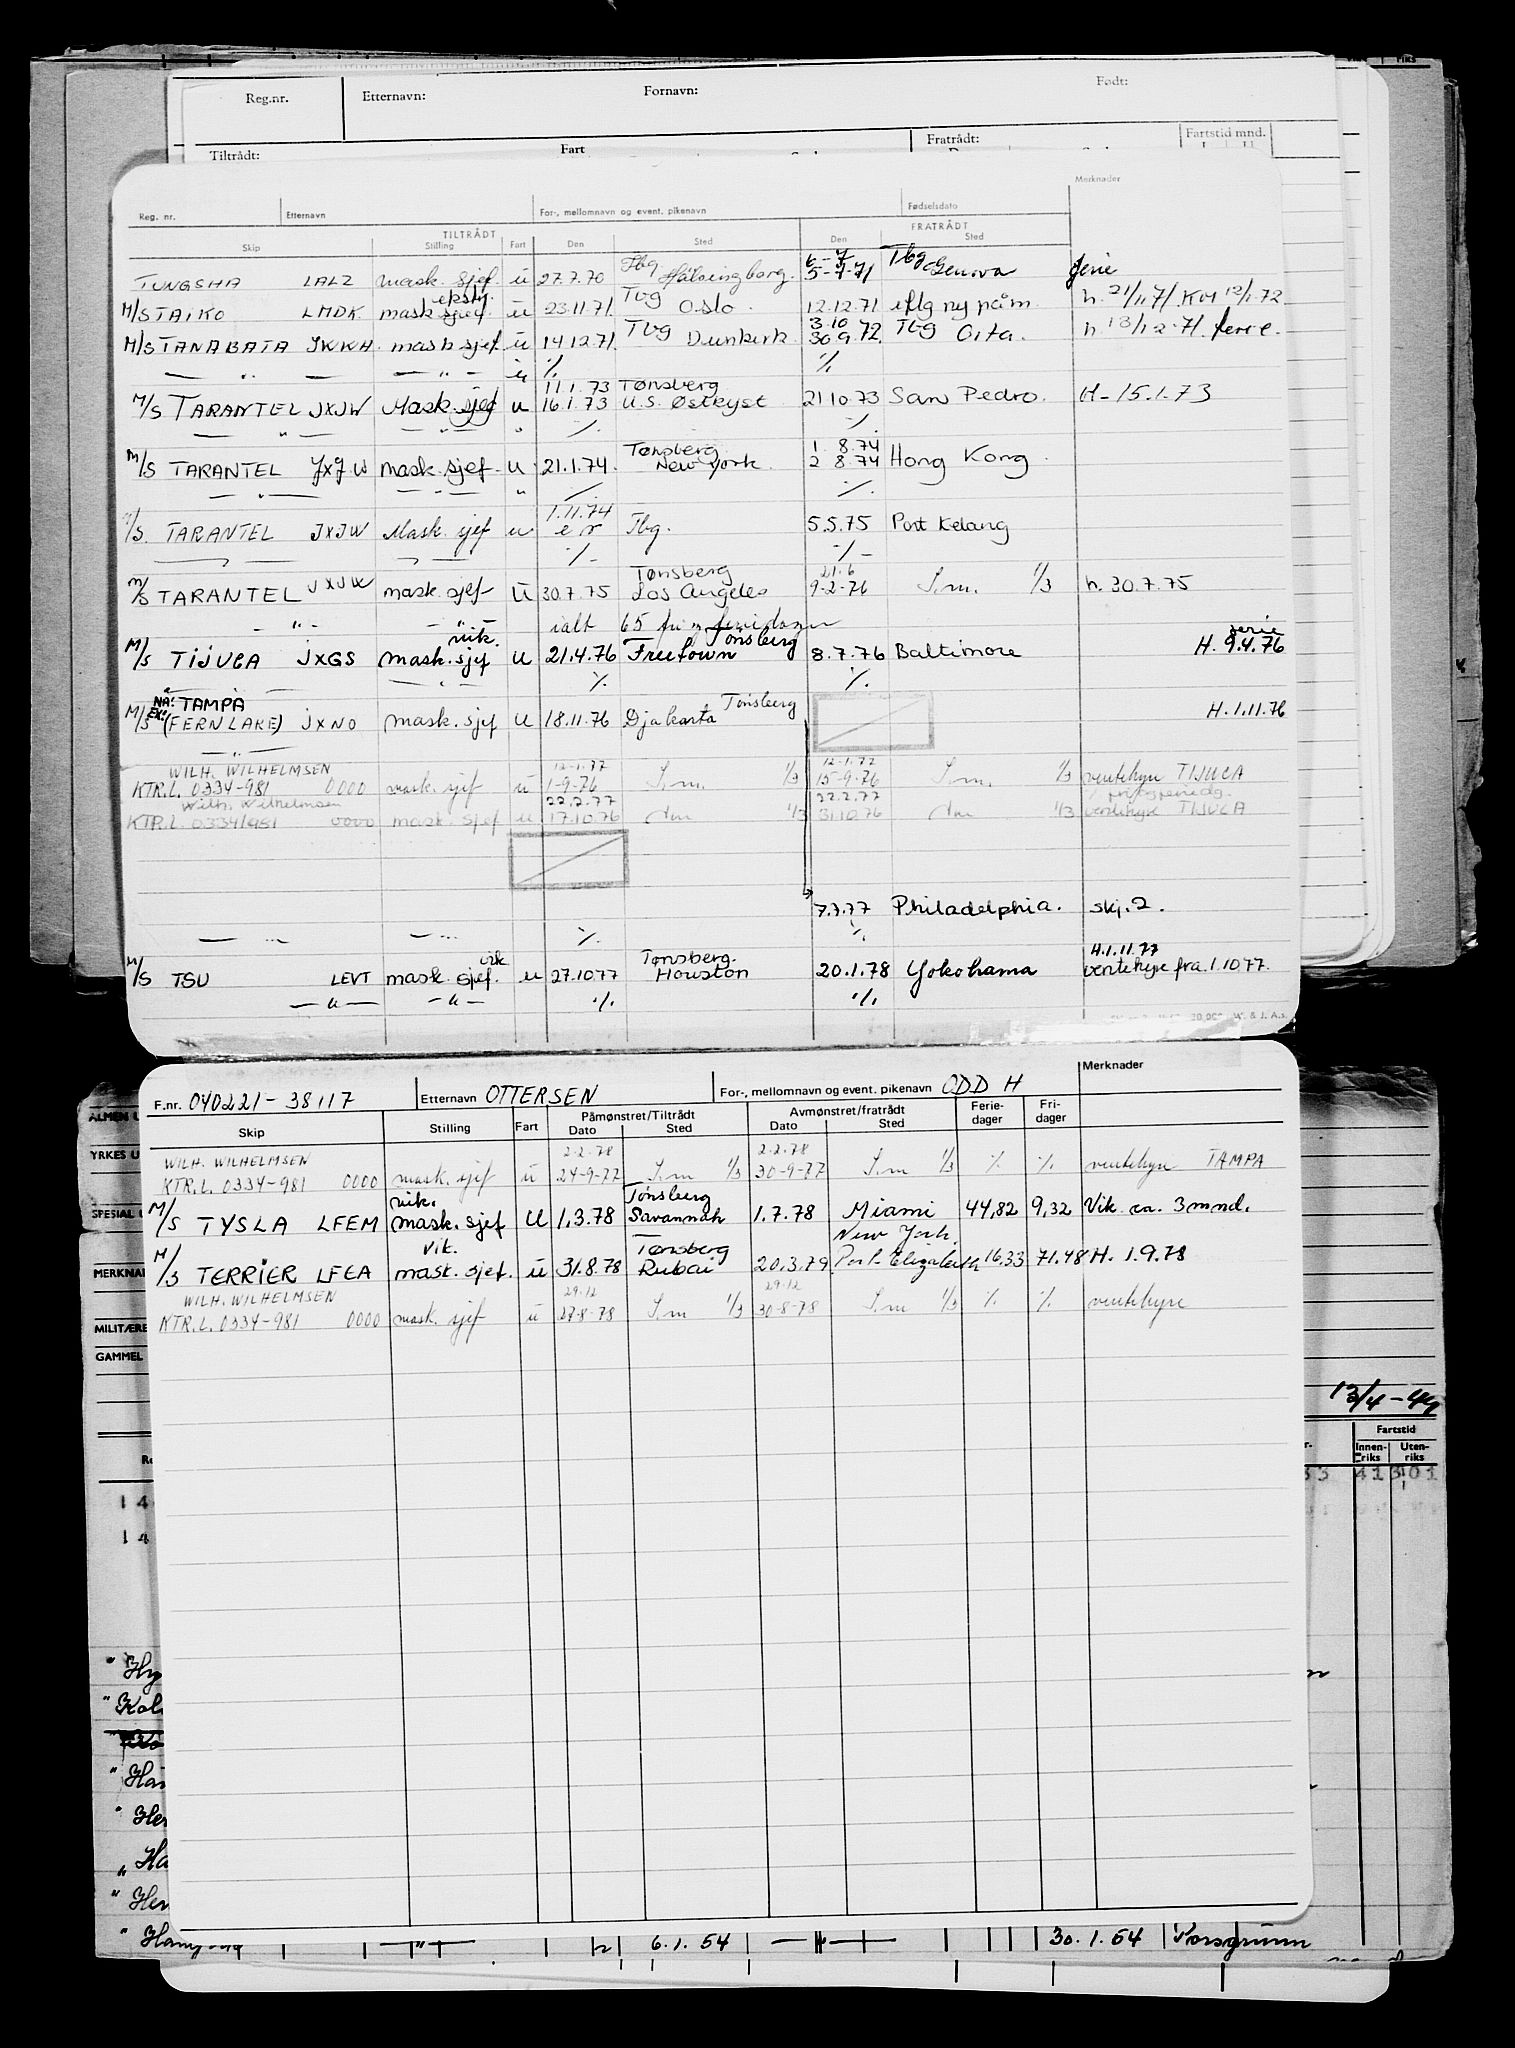 Reg.nr. Etternavn: Fornavn: Født:
Tiltrådt: Fart Fratrådt: Fartstid mnd.
Reg. nr. Etternavn For-, mellomnavn og event. pikenavn Fødselsdato Merknader
TILTRÅDT FRATRÅDT
Skip Stilling Fart Den Sted Den Sted
6-7 Tbg
TUNGSHA LALZ mask. sjef ū 27.7.70 Tbg. Hälsingborg. 5-7-71 Genova ferie
ekstr.
M/S TAIKO LMDK mask sjef. ū 23.11.71 Tbg Oslo. 12.12.71 eflg ny påm. h. 21/11 71. KM 12/1.72
3.10
M/S TANABATA JKKH mask sjef ū 14.12.71 Tbg Dunkirk 30.9.72 Tbg Oita. h. 13/12.71. ferie.
— " — — " — ū % %
11.1.73 Tønsberg
M/S TARANTEL JXJW Mask. sjef u 16.1.73 U.S. Østkyst 21.10.73 San Pedro. H-15.1.73
— " — — " — " % %
Tønsberg 1.8.74
M/S TARANTEL JXJW mask. sjef. u. 21.1.74. New York. 2 8.74 Hong Kong.
— " — — " — " % %
1.11.74
M/S. TARANTEL JXJW Mask. sjef u e r Tbg. 5.5.75 Port Kelang
% %
Tønsberg 21.6
M/S TARANTEL JXJW mask. sjef ū 30.7.75 Los Angeles 9-2-76 S.m. 1/3 h. 30.7.75
— " — — " — ialt 65 fri og feriedager
vik. Tønsberg ferie
M/S TIJUCA JXGS mask. sjef u 21.4.76 Freetown 8.7.76 Baltimore H. 9.4.76
— " — % %
NÅ: TAMPA Tønsberg
M/S EX: (FERNLAKE) JXNO mask. sjef u 18.11.76 Djakarta H. 1.11.76
— " —
WILH. WILHELMSEN 12-1.77 12-1.77
KTR.L. 0334-981 0000 mask. sjef ū 1-9-76 S.m. 1/3 15-9-76 S.m. 1/3 ventehyre TIJUCA
Wilh. Wilhelmsen 22.2.77 22.2.77
KTR.L. 0334/981 0000 mask. sjef ū 17.10.76 1/3 31.10.76 1/3 ventehyre TIJUCA
7.7.77 Philadelphia. skj. 2.
— " — — " — % %
vik Tønsberg. H.1.11.77
M/S TSU LEVT mask. sjef. u 27.10 77 Houston 20.1.78 Yokohama ventehyre fra. 1.10 77.
— " — — " — % %
F.nr. 040221-38117 Etternavn OTTERSEN For-, mellomnavn og event. pikenavn ODD H Merknader
Påmønstret/Tiltrådt Avmønstret/fratrådt Ferie- Fri-
Skip Stilling Fart Dato Sted Dato Sted dager dager
WILH. WILHELMSEN 2.2.78 2.2.78
KTR.L. 0334-981 0000 mask. sjef ū 24-9-77 S.m 1/3 30-9-77 S.m 1/3 % % ventehyre TAMPA
vik. Tønsberg
M/S TYSLA LFEM mask. sjef u 1.3.78 Savannah 1.7.78 Miami 44,82 9,32 Vik. ca. 3 mnd.
vik. Tønsberg New York.
M/S TERRIER LFEA mask. sjef. ū 31.8.78 Dubai 20.3.79 Port Elizabeth 16,33 71.48 H. 1.9.78
WILH. WILHELMSEN 29.12 29.12
KTR.L. 0334-981 0000 mask. sjef ū 27-8-78 S.m 1/3 30-8-78 S.m 1/3 % % ventehyre
ALMEN U
YRKES U
SPESIAL U
MERKNA
MILITÆRE
GAMMEL
13/4-49
Fartstid
Innen-riks Uten-riks
41 301
14
14
6.1.54 — " — 30.1.54 Porsgrunn